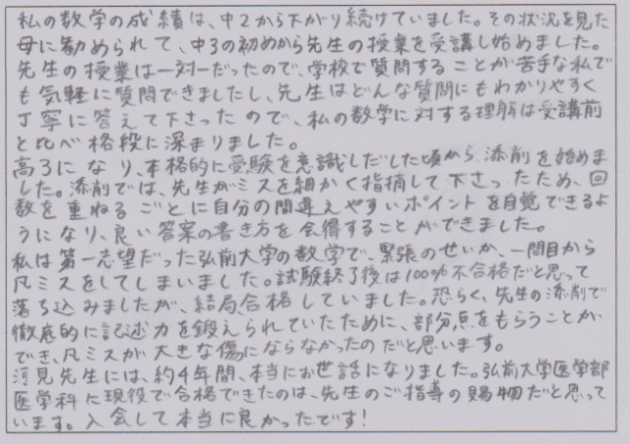 私の数学の成績は、中2から下がり続けていました。その状況を見た
母に勧められて、中3の初めから先生の授業を受講し始めました。
先生の授業は一対一だったので、学校で質問することが苦手な私で
も気軽に質問できましたし、先生はどんな質問にもわかりやすく
丁寧に答えて下さったので、私の数学に対する理解は受講前
と比べ格段に深まりました。
高3になり、本格的に受験を意識しだした頃から、添削を始めま
した。添削では、先生がミスを細かく指摘して下さったため、回
数を重ねるごとに自分の間違えやすいポイントを自覚できるよ
うになり、良い答案の書き方を会得することができました。
私は第一志望だった弘前大学の数学で、緊張のせいか、一問目から
凡ミスをしてしまいました。試験終了後は100%不合格だと思って
落ち込みましたが、結局合格していました。恐らく、先生の添削で
徹底的に記述力を鍛えられていたために、部分点をもらうことが
でき、凡ミスが大きな傷にならなかったのだと思います。
河見先生には、約4年間、本当にお世話になりました。弘前大学医学部
医学科に現役で合格できたのは、先生のご指導の賜物だと思って
います。入会して本当に良かったです!